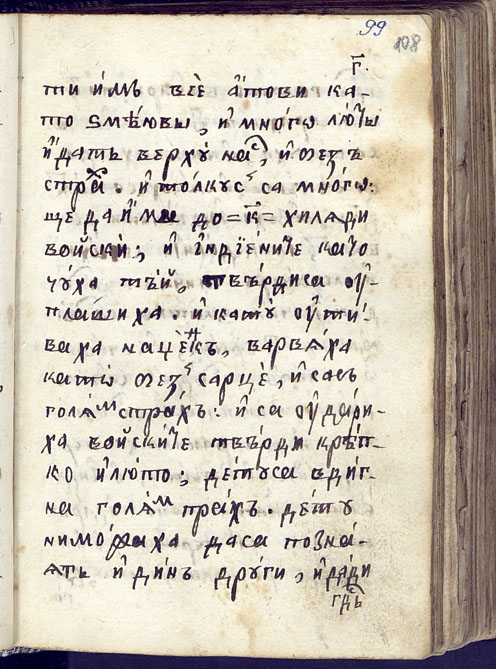 99
108
г҃.
ти и́мь всѐ а҆́тови ка-
то ѕмѣ́ювы, и҆ мно́гѡ лю́ты
и҆́дать верхꙋ̀ наⷭ, и҆ безъ
страⷯ. и҆ то́лкусъ са мно́гѡ.
ще да и҆́ма до =к҃= хиляди
войскѝ; и҆ і҆ндїе́ните като
чꙋ́ха тѣ́й, твъ́рдиса ѹ҆-
пла́шиха. и҆ катѹ̀ ѹ҆ти-
ваха нацѐкъ, варвѧ́ха
катѡ̀ безъ сарцѐ, и҆ сасъ
голя́ⷨ стра́хъ. и҆ са ѹ҆да́ри-
ха войските твъ́рди крѣ́п-
ко и҆ лю́то; де́тꙋса вди́г-
на голя́ⷨ прахъ. де́тꙋ
нимо́жаха даса позна́-
ять и҆ди́нъ дрꙋ́ги, и҆ ра́ди
гдⷭь